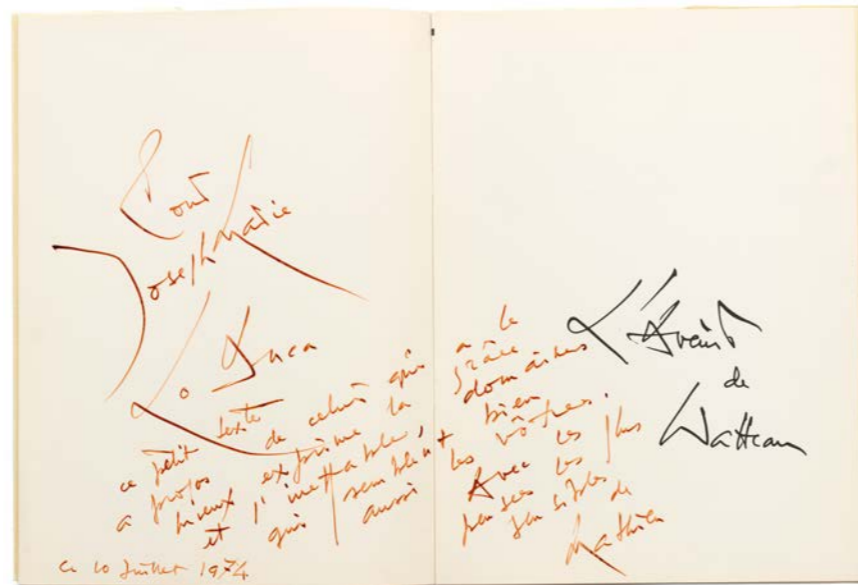 Pour
Joseph Marie
Lo Duca
ce petit texte
a propos de celui qui a le
mieux exprime la grâce
et l'ineffable, domaines
qui semblent bien
aussi les vôtres.
Avec les
pensées les plus
sensibles de
Mathieu
Ce 10 Juillet 1974
de
Watteau